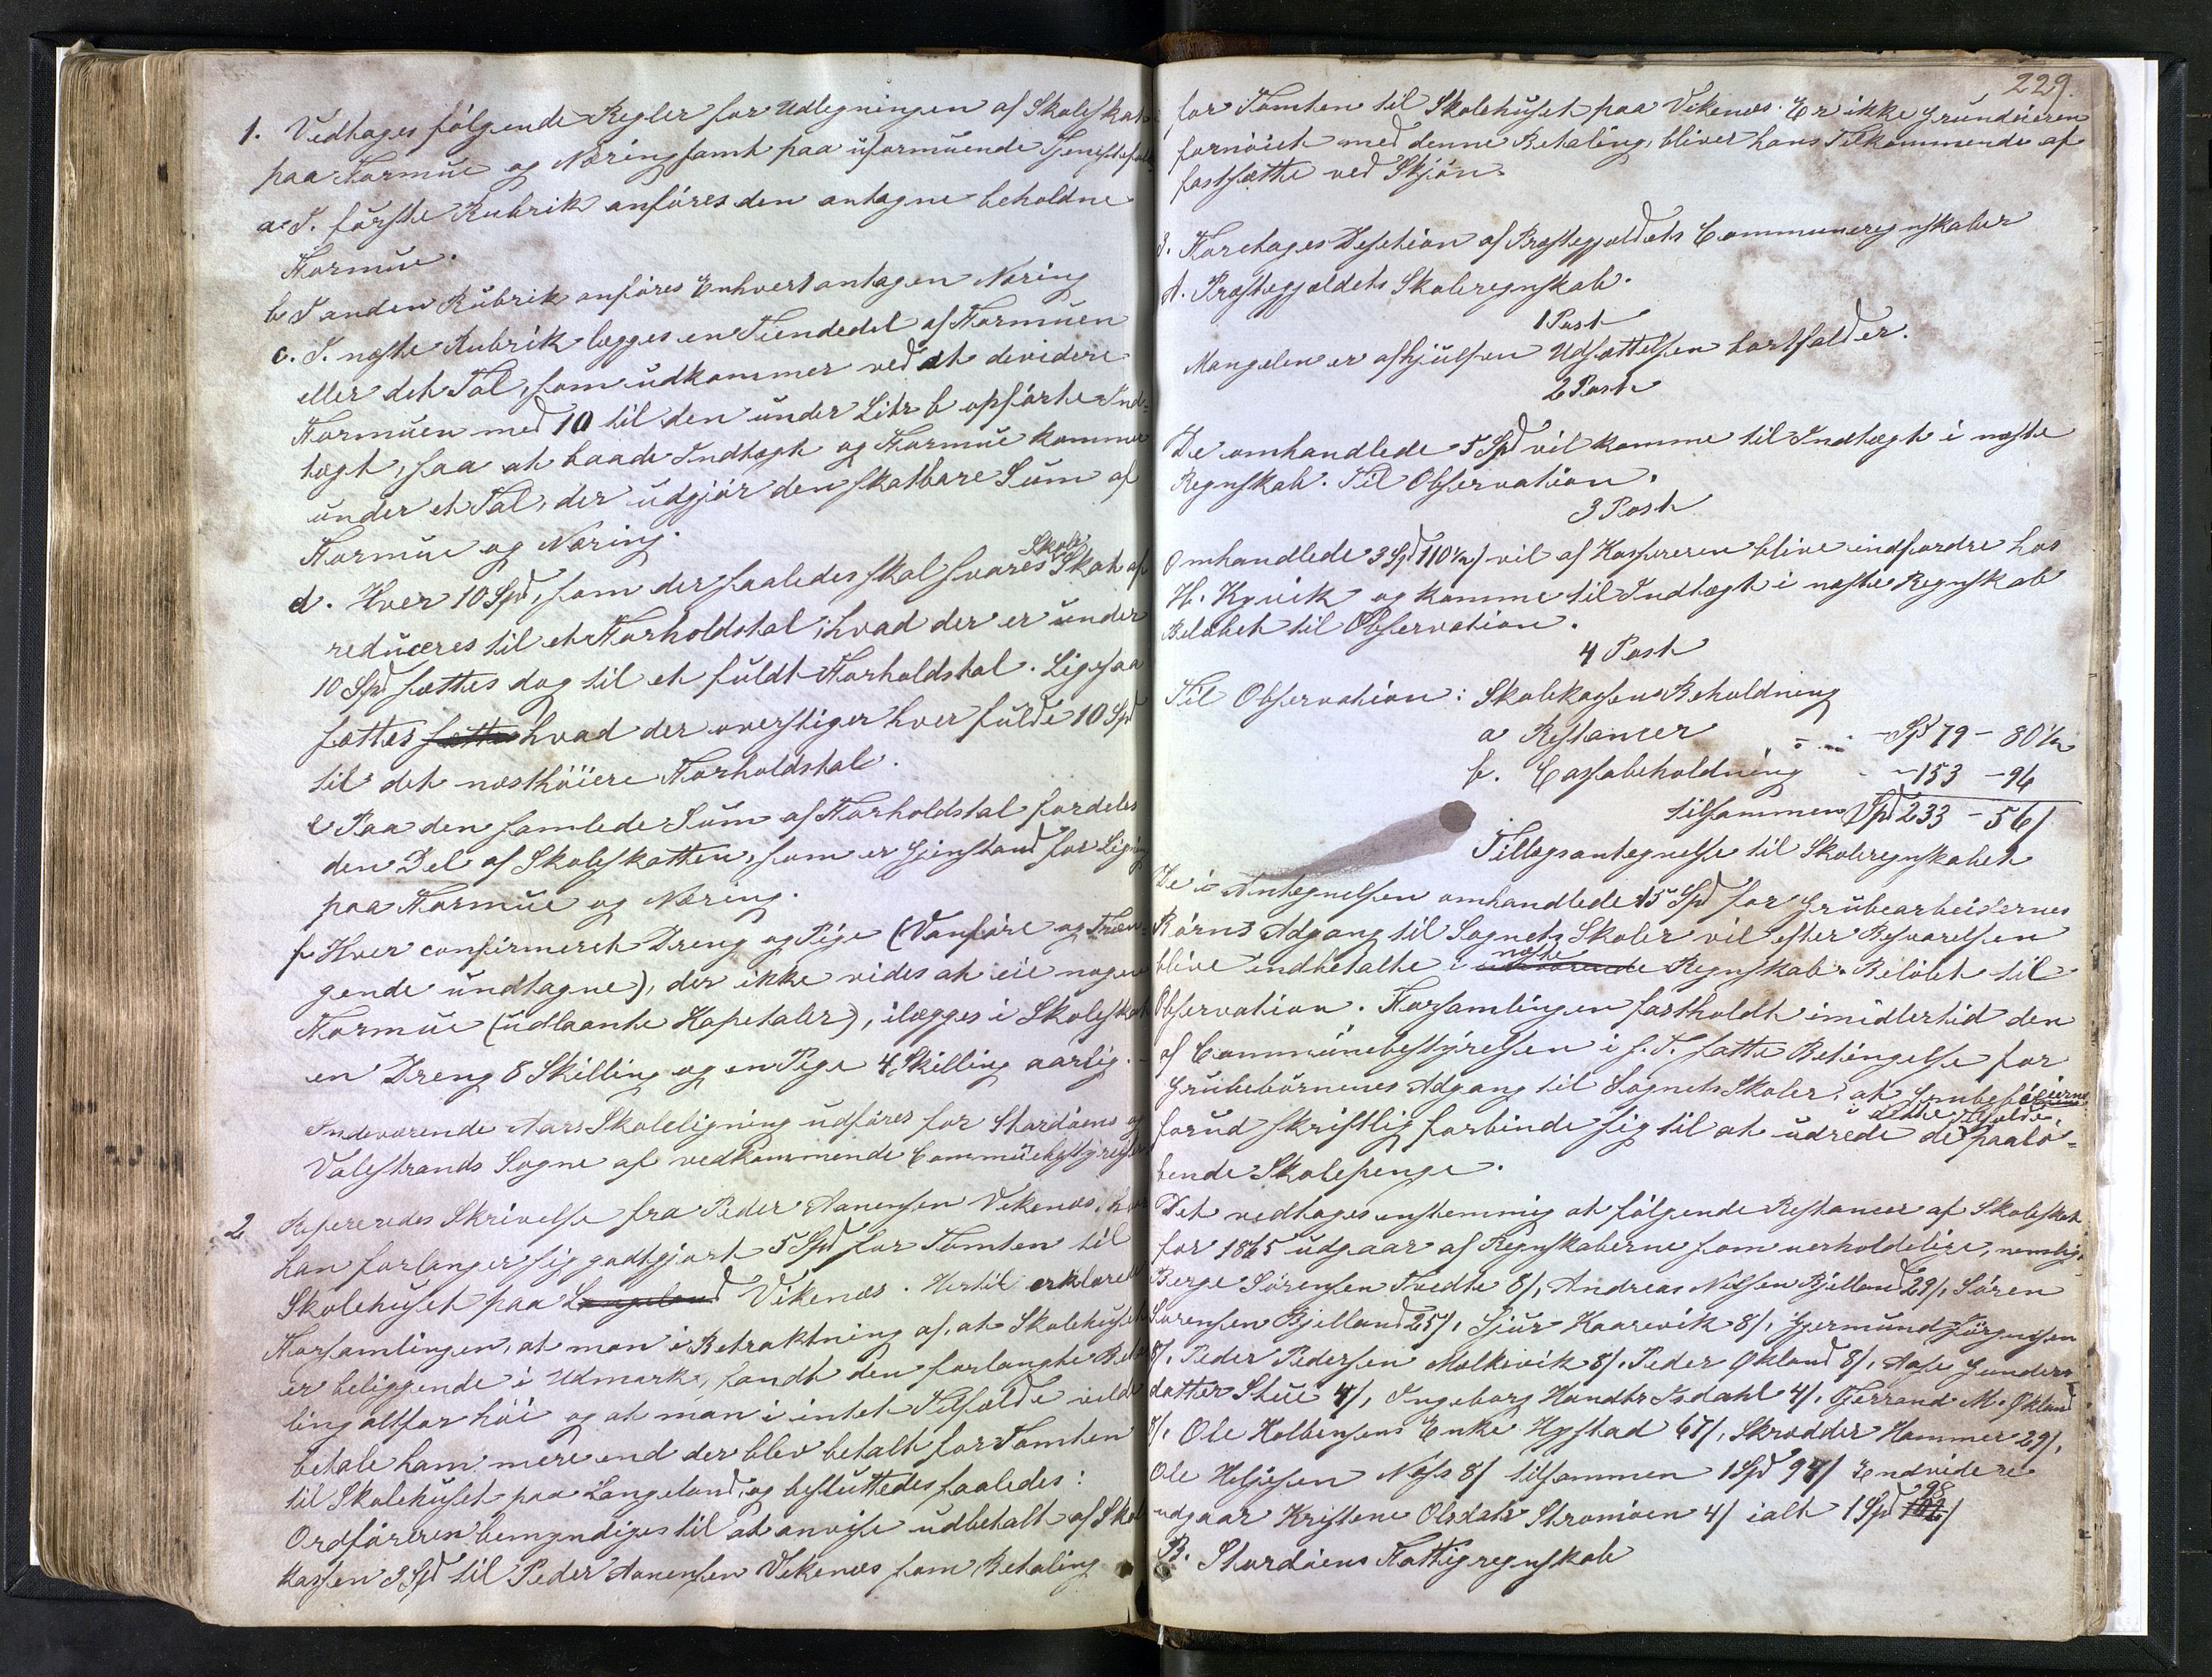 1. Vedtages følgende Regler for Udlegningen af Skoleskat
paa Formue og Næring samt paa uformuende Tjenestefolk
a. I. første Rubrik anføres den antagne beholdne
Formue.
b I anden Rubrik anføres Enhvers antagen Næring
c. I. næste Rubrik lægges en Tiendedel af Formuen
eller det Tal, som udkommer ved at devidere
Formuen med 10 til den under Litr b opførte Ind-
tægt, saa at baade Indtægt og Formue kommer
under et Tal, der udgjør den skatbare Sum af
Formue og Næring.
d. Hver 10 Spd, som der saaledes skal svares Skole Skat af
reduceres til et Forholdstal; hvad der er under
10 Spd sættes dog til et fuldt Forholdstal. Ligesaa
sættes sættes hvad der overstiger hver fulde 10 Spd
til det næsthøiere Forholdstal.
e Paa den samlede Sum af Forholdstal fordeles
den Del af Skoleskatten, som er Gjenstand for Ligning
paa Formue og Næring.
f. Hver confirmeret Dreng og Pige (Vanføre og Træn-
gende undtagne), der ikke vides at eie nogen
Formue (udlaante Kapetaler), ilægges i Skoleskat
en Dreng 8 Skilling og en Pige 4 Skilling aarlig.-
Indeværende Aars Skoleligning udføres for Stordøens og
Valestrands Sogne af vedkommende
2 Refereredes Skrivelse fra Peder Aanensen Vikenæs, hvor
han forlanger sig godtgjort 5 Spd for Tomten til
Skolehuset paa Langeland Vikenæs. Hertil erklærede
Forsamlingen, at man i Betraktning af, at Skolehuset
er beliggende i Udmark, fandt den forlangte Beta-
ling altfor høi og at man i intet Tilfælde vilde
betale ham mere end der blev betalt for Tomten
til Skolehuset paa Langeland, og besluttedes saaledes:
Ordføreren bemyndiges til at anvise udbetalt af Skole
kassen 3 Spd til Peder Aanensen Vikenæs som Betaling
229.
for Tomten til Skolehuset paa Vikenæs. Er ikke Grundeieren
fornøiet med denne Betaling, bliver hans Tilkommende at
fastsætte ved Skjøn.
3. Foretages Desetion af Præstegjældets Communeregnskaber
A. Præstegjældets Skoleregnskab.
1 Post
Mangelen er afhjulpen Udsættelsen bortfalder.
2 Post
De omhandlede 5 Spd vil komme til Indtægt i næste
Regnskab. Til Observation.
3 Post
Omhandlede 3 Spd 110½/ vil af Kassereren blive indfordre hos
H. Kyvik og komme til Indtægt i næste Regnskab
Beløbet til Observation.
4 Post
Til Observation: Skolekassens Beholdning
a Restancer - Spd 79 - 80½
b. Cassabeholdning - - 153 - 96
tilsammen Spd 233 - 56/
Tillægsantegnelse til Skoleregnskabet
De i Antegnelsen omhandlede 15 Spd for Grubearbeidernes
Børns Adgang til Sognets Skoler vil efter Besvarelsen
blive indbetalte i næste Regnskab. Beløbet til
Observation. Forsamlingen fastholdt imidlertid den
af Communebestyrelsen i f. T. satte Betingelse for
Grubebørnenes Adgang til Sognets Skoler, at
forud skriftlig forbinde sig til at udrede de i dette Tilfælde paalø-
bende Skolepenge.
Det vedtages enstemmig at følgende Restancer af Skoleskat
for 1865 udgaar af Regnskaberne som uerholdelige, nemlig:
Berge Sørensen Tvedte 8/, Andreas Nilsen Bjelland 29/, Søren
Sørensen Bjelland 25/, Sjur Kaarevik 8/, Gjermund Jørgensen
8/, Peder Pedersen Molkevik 8/. Peder Økland 8/, Aase Gunders-
datter Stue 4/, Ingeborg Isdahl 4/, M. Økland
/, Ole Enke Hystad 67/, Skrædder Hammer 29/,
Ole Heljesen Næss 8/ tilsammen 1 Spd 94/ Endvidere
udgaar Kristene Olsdatr Strømøen 4/ ialt 1 Spd 98/
B. Stordøens Fattigregnskab